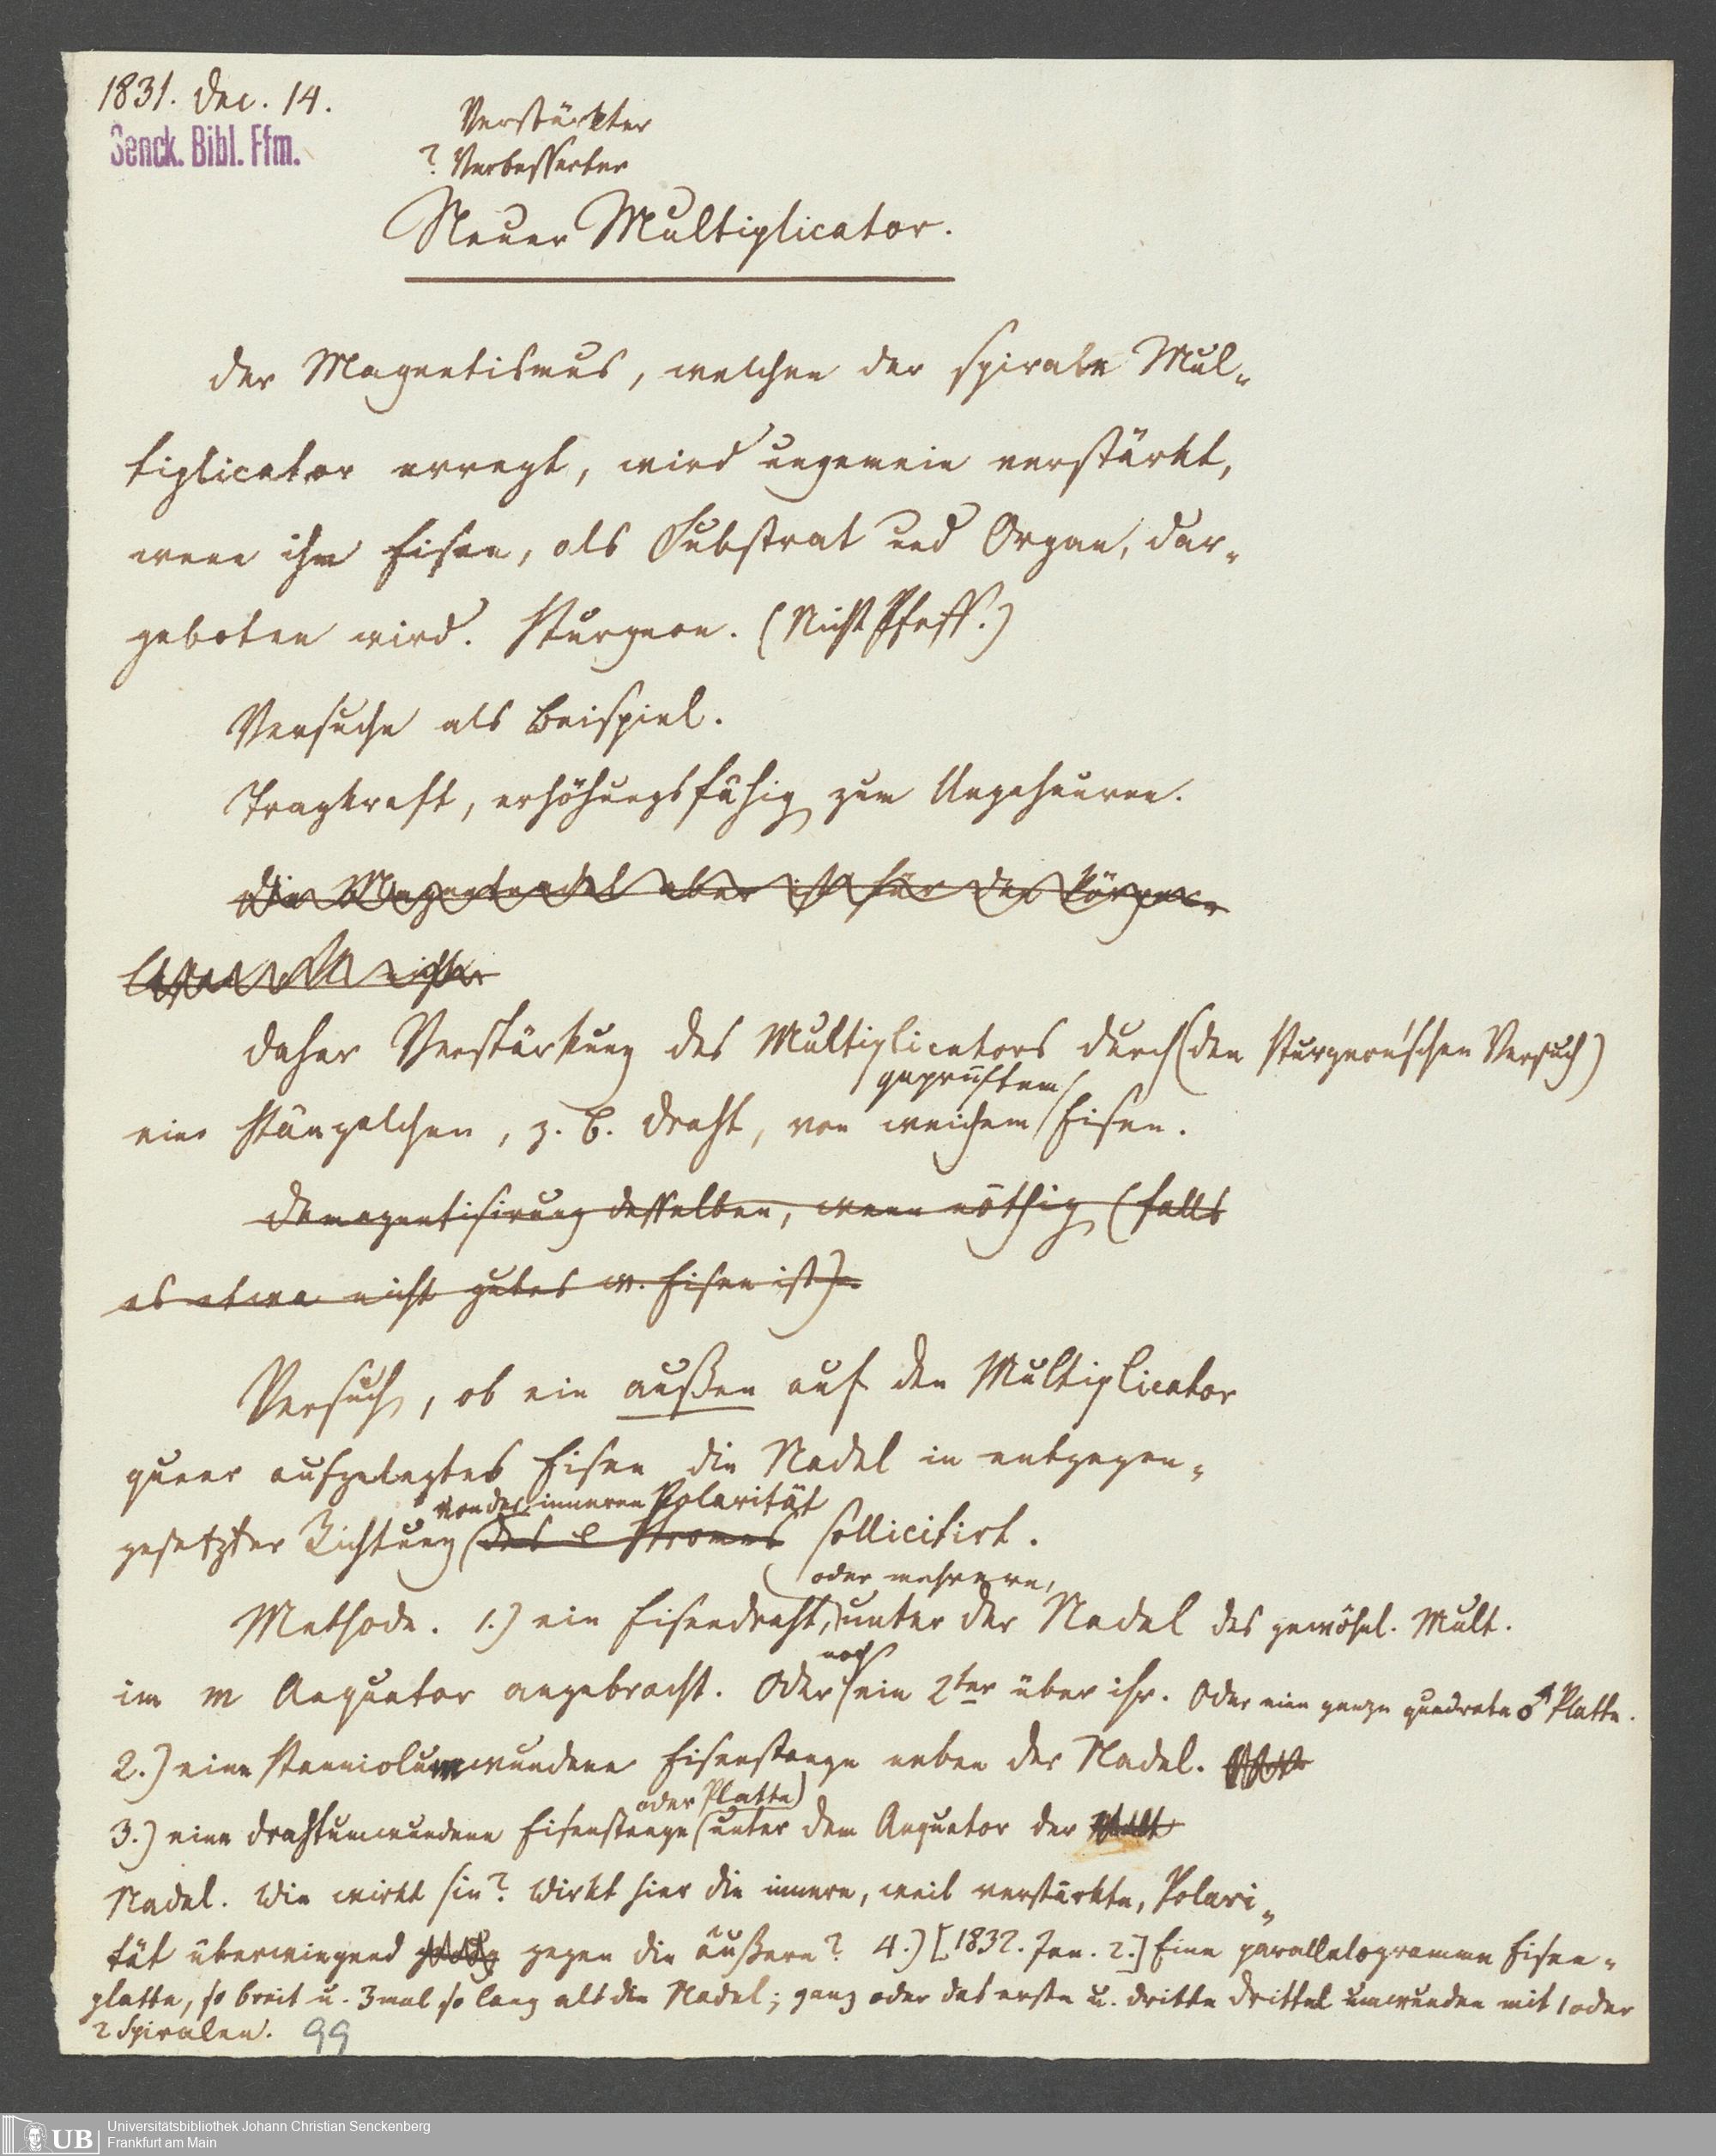 1831. Dec. 14.
Senck. Bibl. Ffm.
Verstärkter
? Verbesserter
Neuer Multiplicator.
Der Magnetismus, welchen der spirale Mul-
tiplicator erregt, wird ungemein verstärkt,
wenn ihm Eisen, als Substrat und Organ, dar-
geboten wird. Sturgeon. (Nicht Pfaff.)
Versuche als Beispiel.
Tragkraft, erhöhungsfähig zum Ungeheuren.
Die Magnetnadel aber ist für den Körper-
Daher Verstärkung des Multiplicators durch (den Sturgeon'schen Versuch)
geprüftem
ein Stängelchen, z. B. Draht, von weichem Eisen.
Demagnetisirung desselben, wenn nöthig (falls
es etwa nicht gutes w. Eisen ist).
Versuch, ob ein außen auf den Multiplicator
queer aufgelegtes Eisen die Nadel in entgegen-
von der inneren Polarität
gesetzter Richtung (des e Stromes sollicitirt.
oder mehrere,
Methode. 1.) ein Eisendraht, unter der Nadel des gewöhnl. Mult.
noch
im m Aequator angebracht. Oder ein 2ter über ihr. Oder eine ganze quadrate ♂ Platte.
2.) eine Stanniolumwundene Eisenstange neben der Nadel.
oder Platte)
3.) eine drahtumwundene Eisenstange (unter dem Aequator der
Nadel. Wie wirkt sie? Wirkt hier die innere, weil verstärkte, Polari-
tät überwiegend gegen die äußere? 4.) [1832. Jan. 2.] Eine parallelogramme Eisen-
platte, so breit u. 3mal so lang als die Nadel; ganz oder das erste u. dritte Drittel umwunden mit 1 oder
2 Spiralen. 99
UB
Universitätsbibliothek Johann Christian Senckenberg
Frankfurt am Main